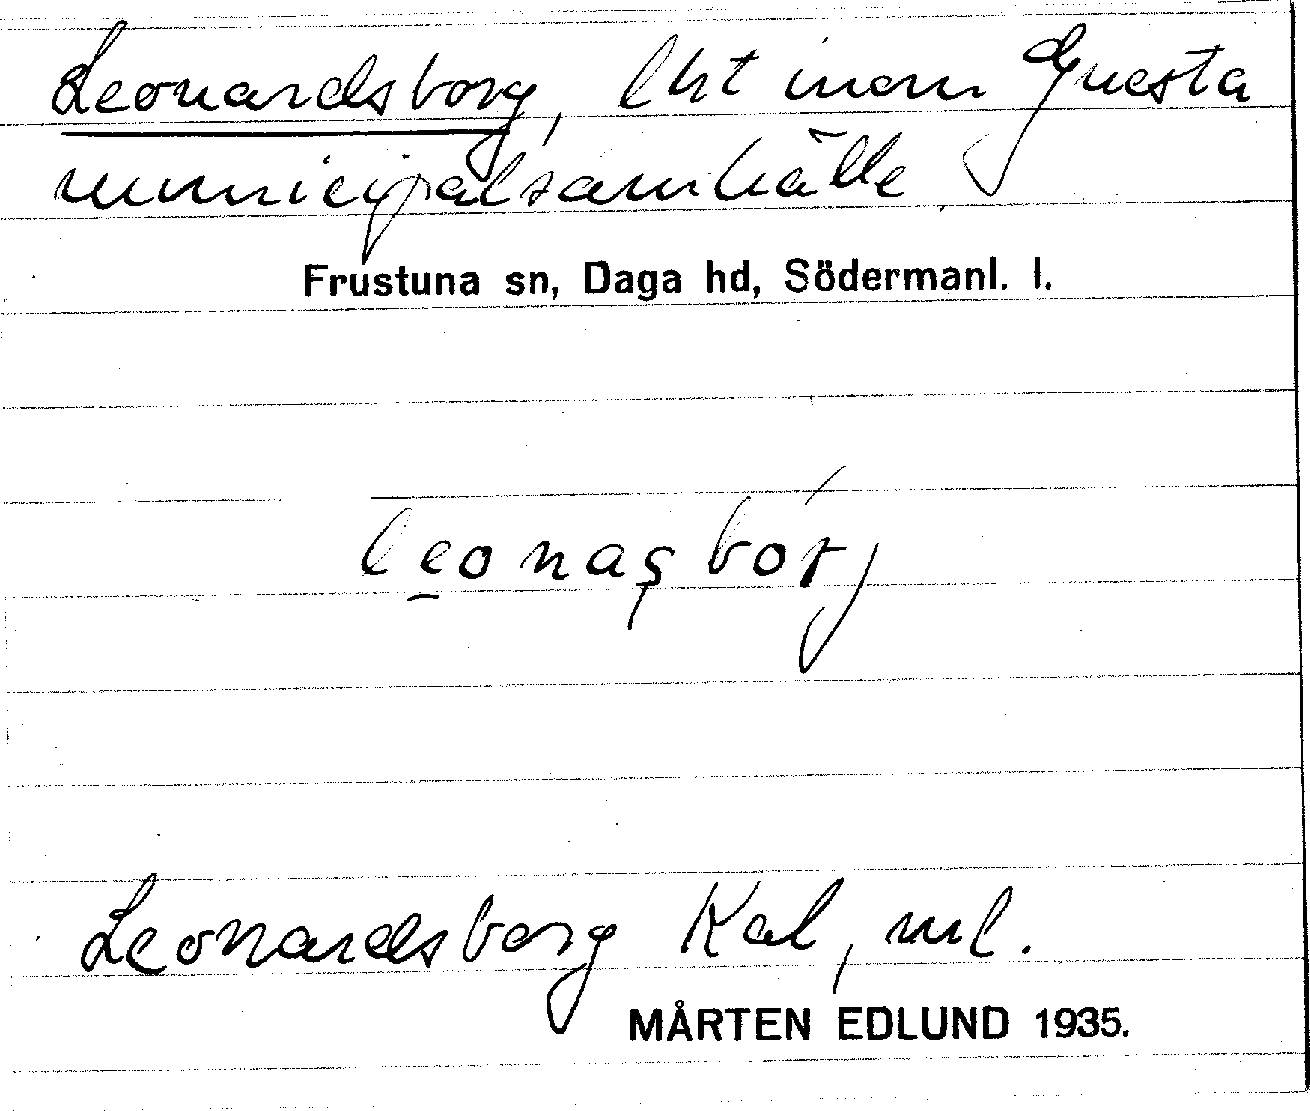 Leonardsborg, lht inom Gnesta
municipalsamhälle.
Frustuna sn, Daga hd, Södermanl. l.
leonaʂbórj
Leonardsborg Kal, ml.
MÅRTEN EDLUND 1935.